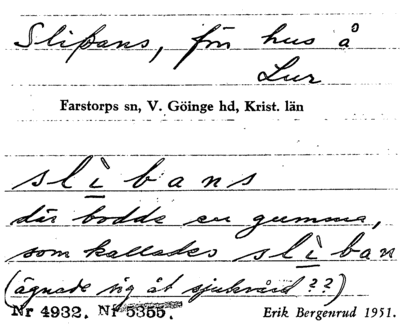 Slipans, för hus å
Lur
Farstorps sn, V. Göinge hd, Krist. län
slibans
där bodde en gumma,
som kallades sliban
(ägnade sig åt sjukvård??)
Nr 4932. Nr 5355. Erik Bergenrud 1951.